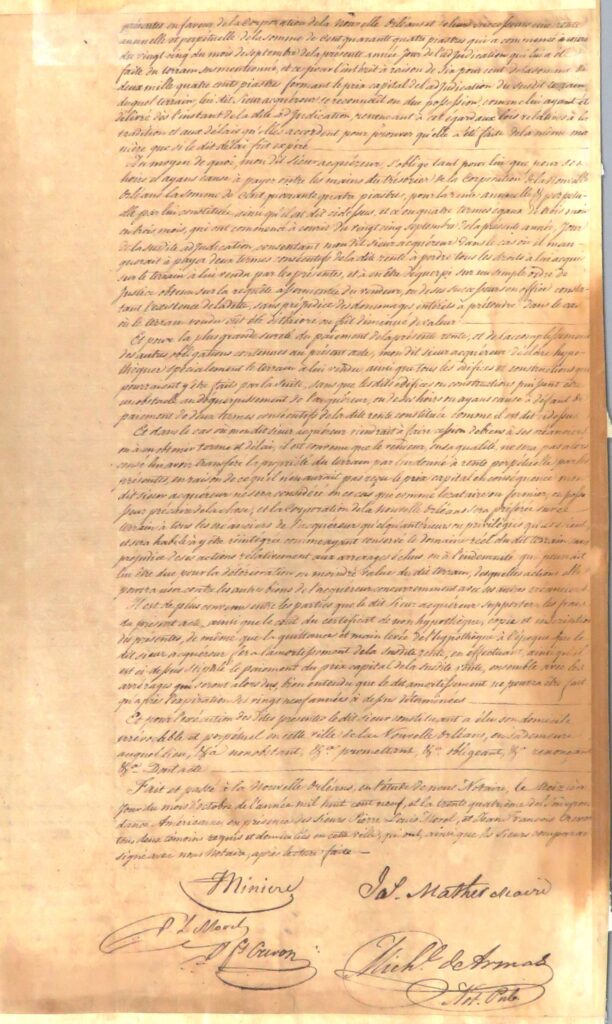 présentes en faveur de la Corporation de la Nouvelle Orléans et celui une rente
annuelle et perpétuelle de la somme de Cent quarante quatre piastres qui a commencé à courir
du vingt cinq du mois de Septembre de la présente année Jour de l'adjudication qui lui a été
faite du terrain susmentionné, et ce pour l'intérêt à raison de Six pour cent de la somme de
deux mille quatre cents piastres formant le prix capital de l'adjudication du susdit terrain
duquel terrain, le dit Sieur acquéreur se reconnait en due possession, comme lui ayant été
délivré dès l'instant de la dite adjudication, renonçant à cet égard aux lois relatives à la
tradition et aux délais qu'elles accordent pour prouver qu'elle a été faite de la même ma
nière que si le dit délai fut expiré
Au moyen de quoi, mon dit Sieur acquéreur s'oblige tant pour lui que pour ses
hoirs et ayans cause à payer entre les mains du trésorier de la Corporation de la Nouvelle
Orléans la somme de Cent quarante quatre piastres, pour la rente annuelle & perpé
tuelle par lui constituée, ainsi qu'il est dit ci dessus, et ce en quatre termes égaux de trois mois
en trois mois, qui ont commencé à courir du vingt cinq Septembre de la présente année, Jour
de la susdite adjudication, consentant mon dit Sieur acquéreur dans le cas où il man
querait à payer deux termes consécutifs de la dite rente à perdre tous les droits à lui acquis
sur le terrain à lui vendu par les présentes, et à en être déguerpi sur un simple ordre de
Justice obtenu sur la requête assermentée du vendeur, ou de ses successeurs en office cons
tant l'existence de la dette, sans préjudice des dommages intérêts à prétendre dans le cas
où le terrain vendu eut été détérioré ou fut diminué de valeur
Et pour la plus grande sureté du paiement de la présente rente, et de l'accomplissement
des autres obligations contenues au présent acte, mon dit Sieur acquéreur déclare hypo
théquer spécialement le terrain à lui vendu, ainsi que tous les édifices et constructions qui
pourraient y être faits par la suite, sans que les dits édifices ou constructions puissent être
un obstacle au déguerpissement de l'acquéreur, ou de ses hoirs ou ayans cause à défaut de
paiement de deux termes consécutifs de la dite rente constituée comme il est dit ci dessus
Et dans le cas où mon dit Sieur acquéreur viendrait à faire cession de biens à ses créanciers
ou à en obtenir terme et délai, il est convenu que le vendeur, en sa qualité, ne sera pas alors
censé lui avoir transféré la propriété du terrain par lui donné à rente perpétuelle par les
présentes, en raison de ce qu'il n'en aurait pas reçu le prix capital en conséquence mon
dit Sieur acquéreur ne sera considéré en ce cas que comme locataire ou fermier,
pour la chose, et la Corporation de la Nouvelle Orléans sera préférée sur ce
terrain à tous les créanciers de l'acquéreur quelqu'antérieurs ou privilégiés qu'ils soient
et sera habile à y être réintégrée comme ayant conservé le domaine réel du dit terrain sans
préjudice de ses actions relativement aux arrérages échus ou à l'indemnité qui pourrait
lui être due pour la détérioration ou moindre value du dit terrain, desquelles actions elle
pourra user contre les autres biens de l'acquéreur concurremment avec ses autres créanciers
Il est de plus convenu entre les parties que le dit Sieur acquéreur supportera les frais
du présent acte, ainsi que le coût du certificat de non hypothèque, copie et
des présentes, de même que la quittance et main levée de l'hypothèque à l'époque que le
dit Sieur acquéreur fera l'amortissement de la susdite rente, en effectuant, ainsi qu'il
est ci dessus stipulé le paiement du prix capital de la susdite rente, ensemble avec les
arrérages qui seront alors dus, bien entendu que le dit amortissement ne pourra être fait
qu'après l'expiration des vingt neuf années ci dessus déterminées
Et pour l'exécution des dites présentes le dit Sieur constituant a élu son domicile
irrévocable et perpétuel en cette ville de la Nouvelle Orléans, en sa demeure
auquel lieu, &a nonobstant, &a promettant, &a obligeant, & renonçant
&a Dont acte
Fait et passé à la Nouvelle Orléans, en l'étude de nous Notaire, le
Jour du mois d'octobre de l'année mil huit cent neuf, et la trente quatrième de l'indépen
dance Américaine en présence des Sieurs Pierre Louis Morel, et Jean François
ton, deux témoins requis et domiciliés en cette ville, qui ont, ainsi que les Sieurs comparans
signé avec nous Notaire, après lecture faite
Miniere
Jas. Mather Maire
P L Morel
Michl. de Armas
Not. Pub.